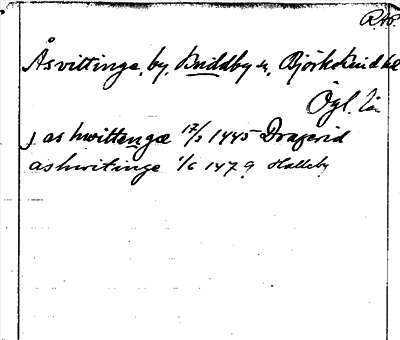 RAP.
Åsvittinge, by, Bruddby sn, Björkekinds hd
Ögl. län
j as hwittengæ 17/3 1445 Drafwid
ashwitinge 1/6 1479 Halleby